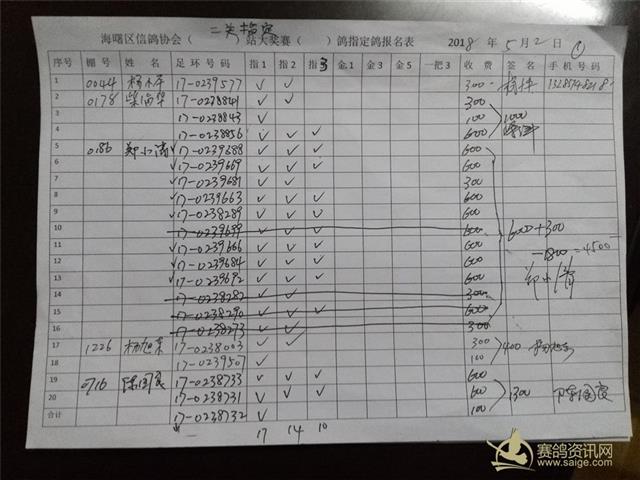 二关指定
海曙区信鸽协会（ ）站大奖赛（ ）鸽指定鸽报名表 2018年5月2日 ①
序号 棚号 姓名 足环号码 指1 指2 指3 金1 金3 金5 一把3 收费 签名 手机号码
1 0044 17-0239577 ✓ ✓ 300
2 0178 17-0238841 ✓ ✓ 300
3 17-0238843 ✓ 100 1000
4 17-0238856 ✓ ✓ ✓ 600
5 0186 郑小清 17-0239688 ✓ ✓ ✓ 600
6 17-0239669 ✓ ✓ ✓ 600
7 17-0239681 ✓ ✓ 300
8 17-0239663 ✓ ✓ ✓ 600
9 17-0238289 ✓ ✓ ✓ 600
10 17-0239699 ✓ ✓ ✓ 600 6000+300
11 17-0239666 ✓ ✓ ✓ 600
12 17-0239684 ✓ ✓ ✓ 600 -1800=4500
13 17-0239692 ✓ ✓ ✓ 600
14 17-0238282 ✓ ✓ 300
15 17-0238290 ✓ ✓ ✓ 600
16 17-0238273 ✓ ✓ 300
17 1226 杨旭东 17-0238003 ✓ ✓ 300 400
18 17-0239507 ✓ 100
19 0716 陈国良 17-0238733 ✓ ✓ ✓ 600
20 17-0238731 ✓ ✓ ✓ 600 1300 陈国良
合计 17-0238732 ✓ 100
17 14 10
赛鸽资讯网
www.saige.com